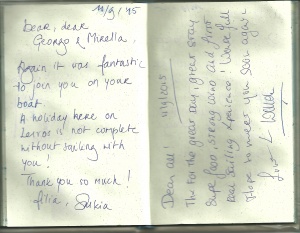 11/9/'15
Dear, dear
George & Mirella,
Again it was fantastic
to join you on your
boat.
A holiday here on
Leros is not complete
without sailing with
you!
Thank you so much!
filia, Saskia
Dear all! 11/9/2015
Thx for the great day, great stay;
Super food, strong wind and first
real sailing
Hope to meet you soon again
Love